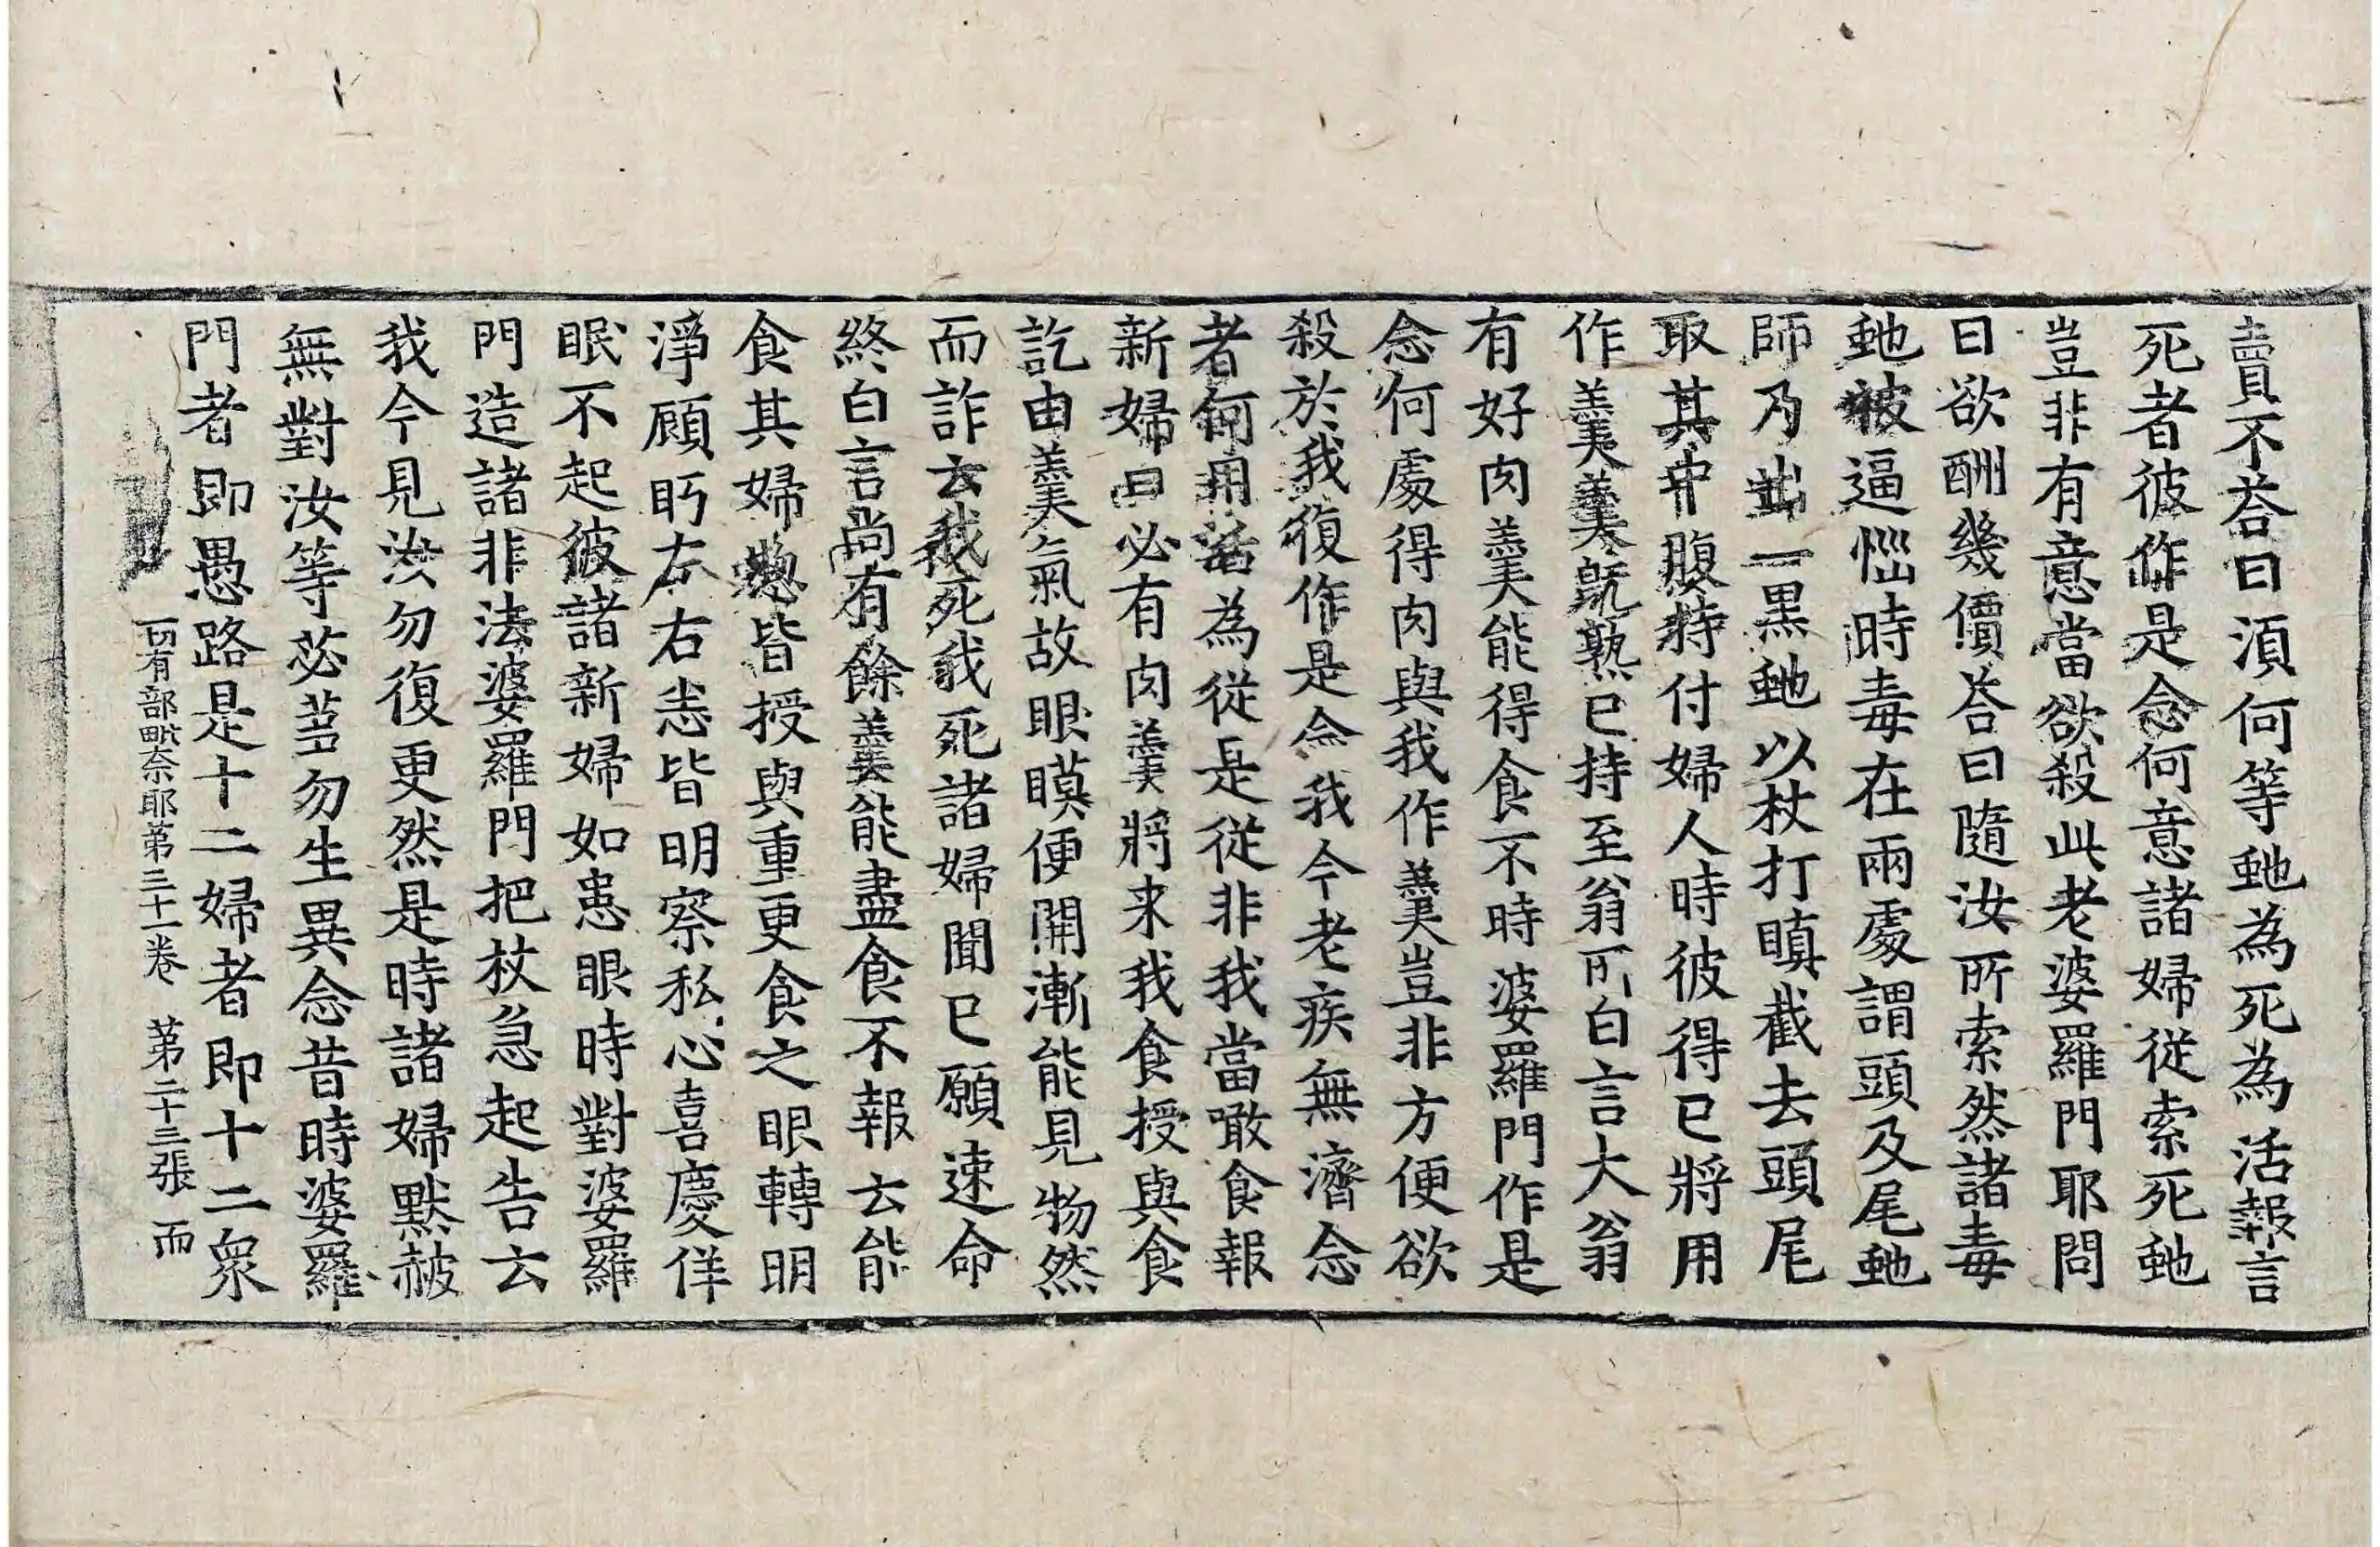 賣不荅曰湏何等虵為死為活報言
死者彼作是念何意諸婦従索死虵
豈非有意當欲殺此老婆羅門耶問
曰欲酬幾價荅曰隨汝所索然諸毒
虵被逼惱時毒在兩處謂頭及尾虵
師乃出一黒虵以杖打瞋截去頭尾
取其中腹持付婦人時彼得已將用
作羹羹既熟已持至翁所白言大翁
有好肉羹能得食不時婆羅門作是
念何處得肉與我作羹豈非方便欲
殺於我復作是念我今老疾無濟念
者何用活為従是従非我當噉食報
新婦曰必有肉羹將来我食授與食
訖由羹氣故眼瞙便開漸能見物然
而詐去我死我死諸婦聞已願速命
終白言尚有餘羹能盡食不報云能
食其婦摠皆授與重更食之眼轉明
淨顧眄左右悉皆明察私心喜慶佯
眠不起彼諸新婦如患眼時對婆羅
門造諸非法婆羅門把杖急起告云
我今見汝勿復更然是時諸婦默赧
無對汝等苾芻勿生異念昔時婆羅
門者即愚路是十二婦者即十二衆
一切有部毗奈耶第三十一卷 第二十三張 而